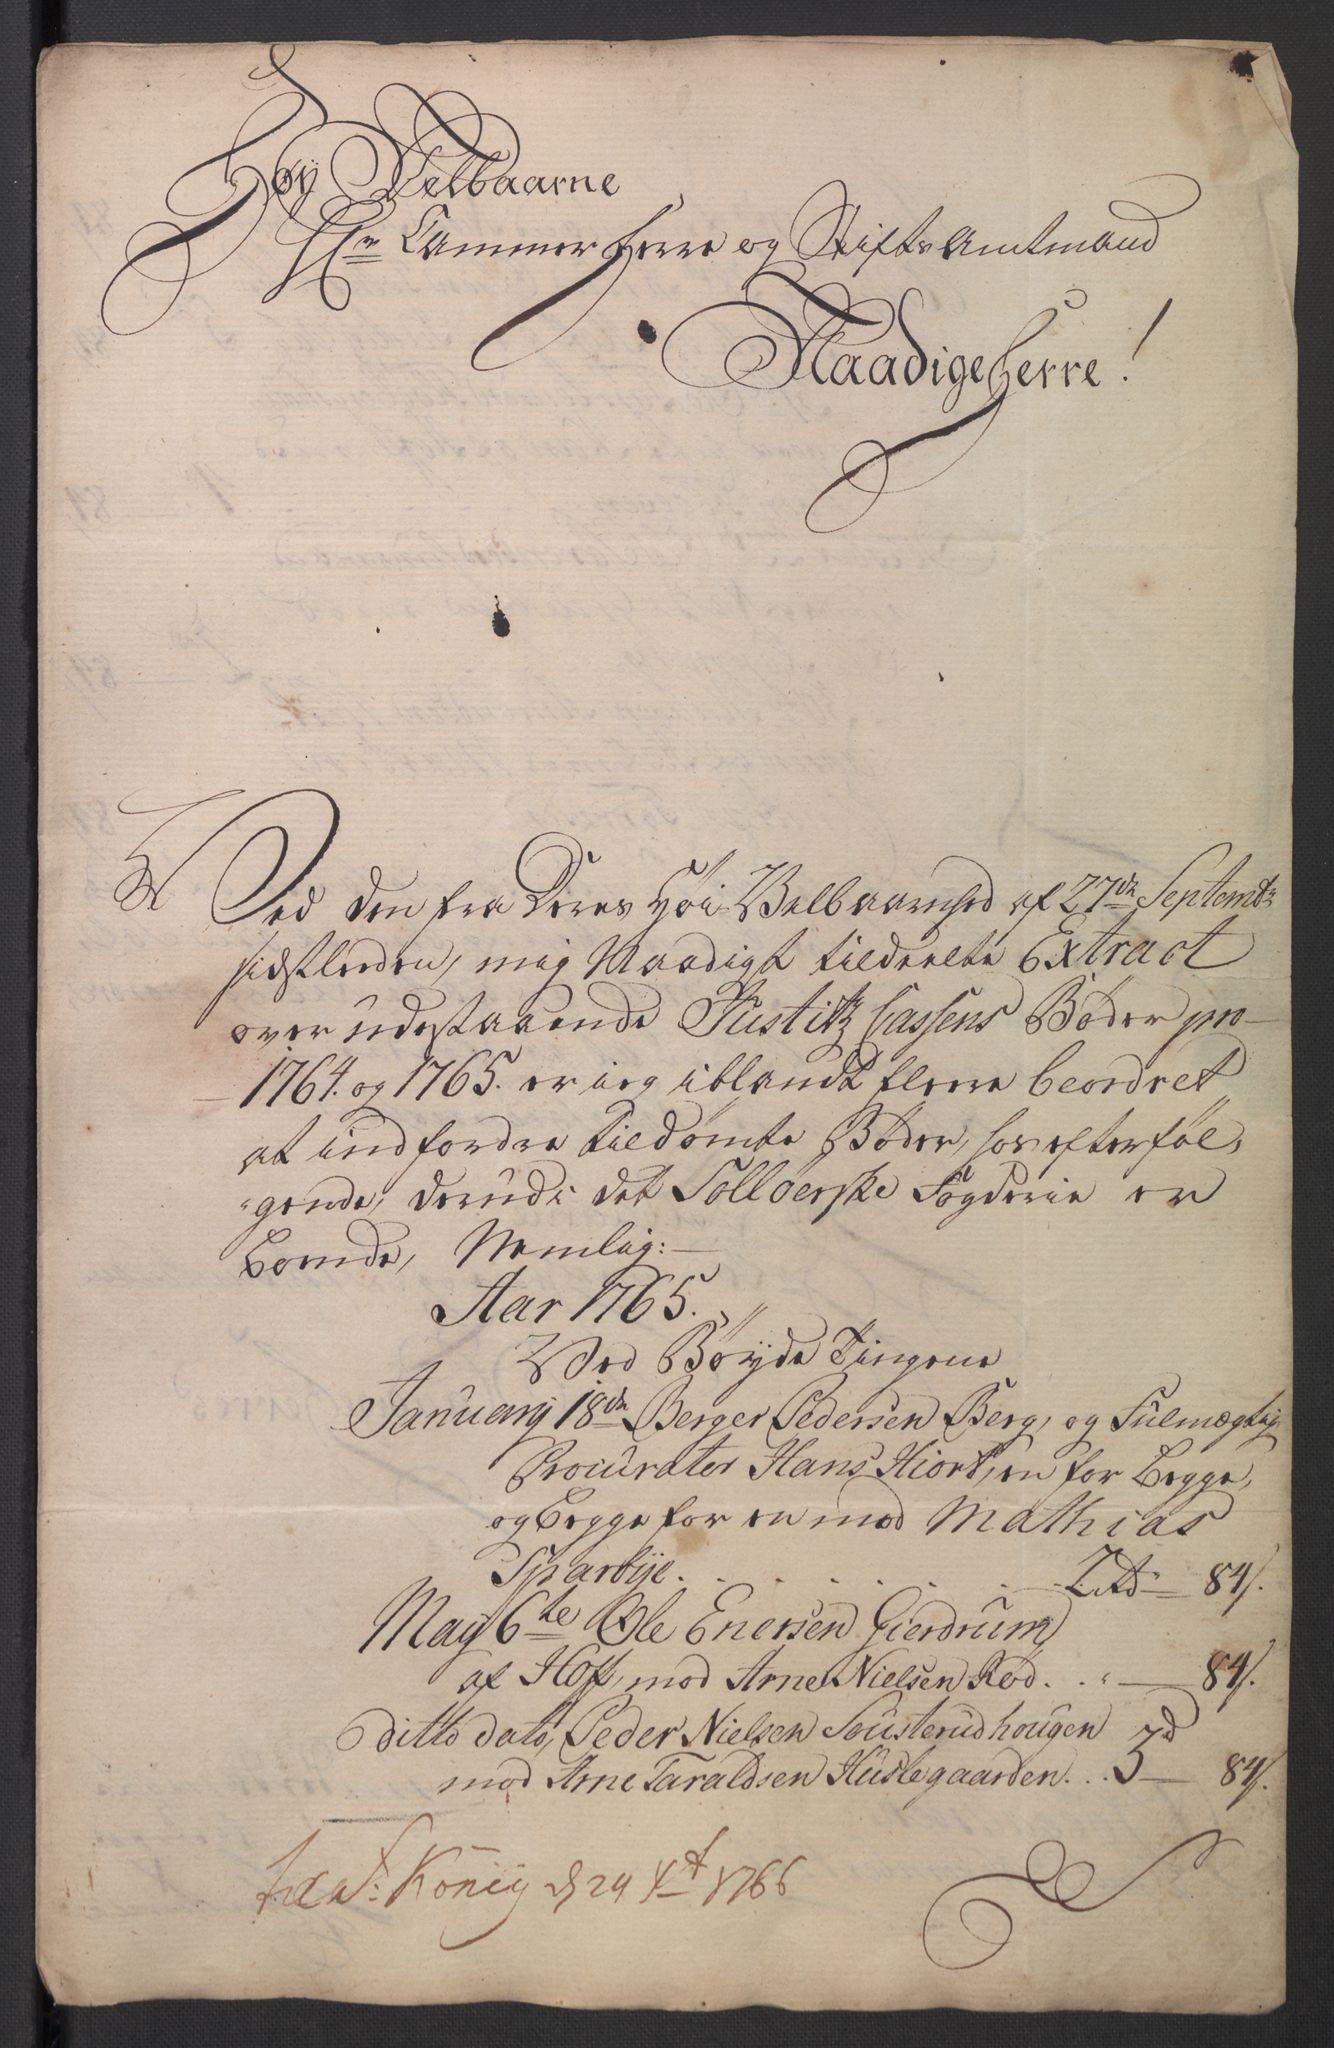 Høy Velbaarne
Hr Cammer Herre og Stifts Amtmand
Naadige Herre!
Ved den fra Deres Høi Velbaarnhed af 27de Septembr
sidstleeden, mig Naadigt tildeelte Extract
over udestaaende Justitz Cassens Bøder pro
1764. og 1765. er ieg iblandt fleere beordret
at indfordre tildømte Bøder, hos efterføl,
gende, derudi det Solløerske Fogderie er
boende, Nemlig:
Aar 1765.
Ved Bøyde Tingene
Januarij 18de Berger Pedersen Berg, og Fulmægtig
Procurator Hans Hiort, en for begge,
og begge for en mod Mathias
Sparbye. . . . . . . 2rd 84s.
May 6te Ole Enersen Gierdrum
af Hoff, mod Arne Nielsen Rød. . . 84s.
ditto dato, Peder Nielsen Sousterudhougen
mod Arne Taraldsen Huslegaarden. . . 3d 84s.
König d 24 1766